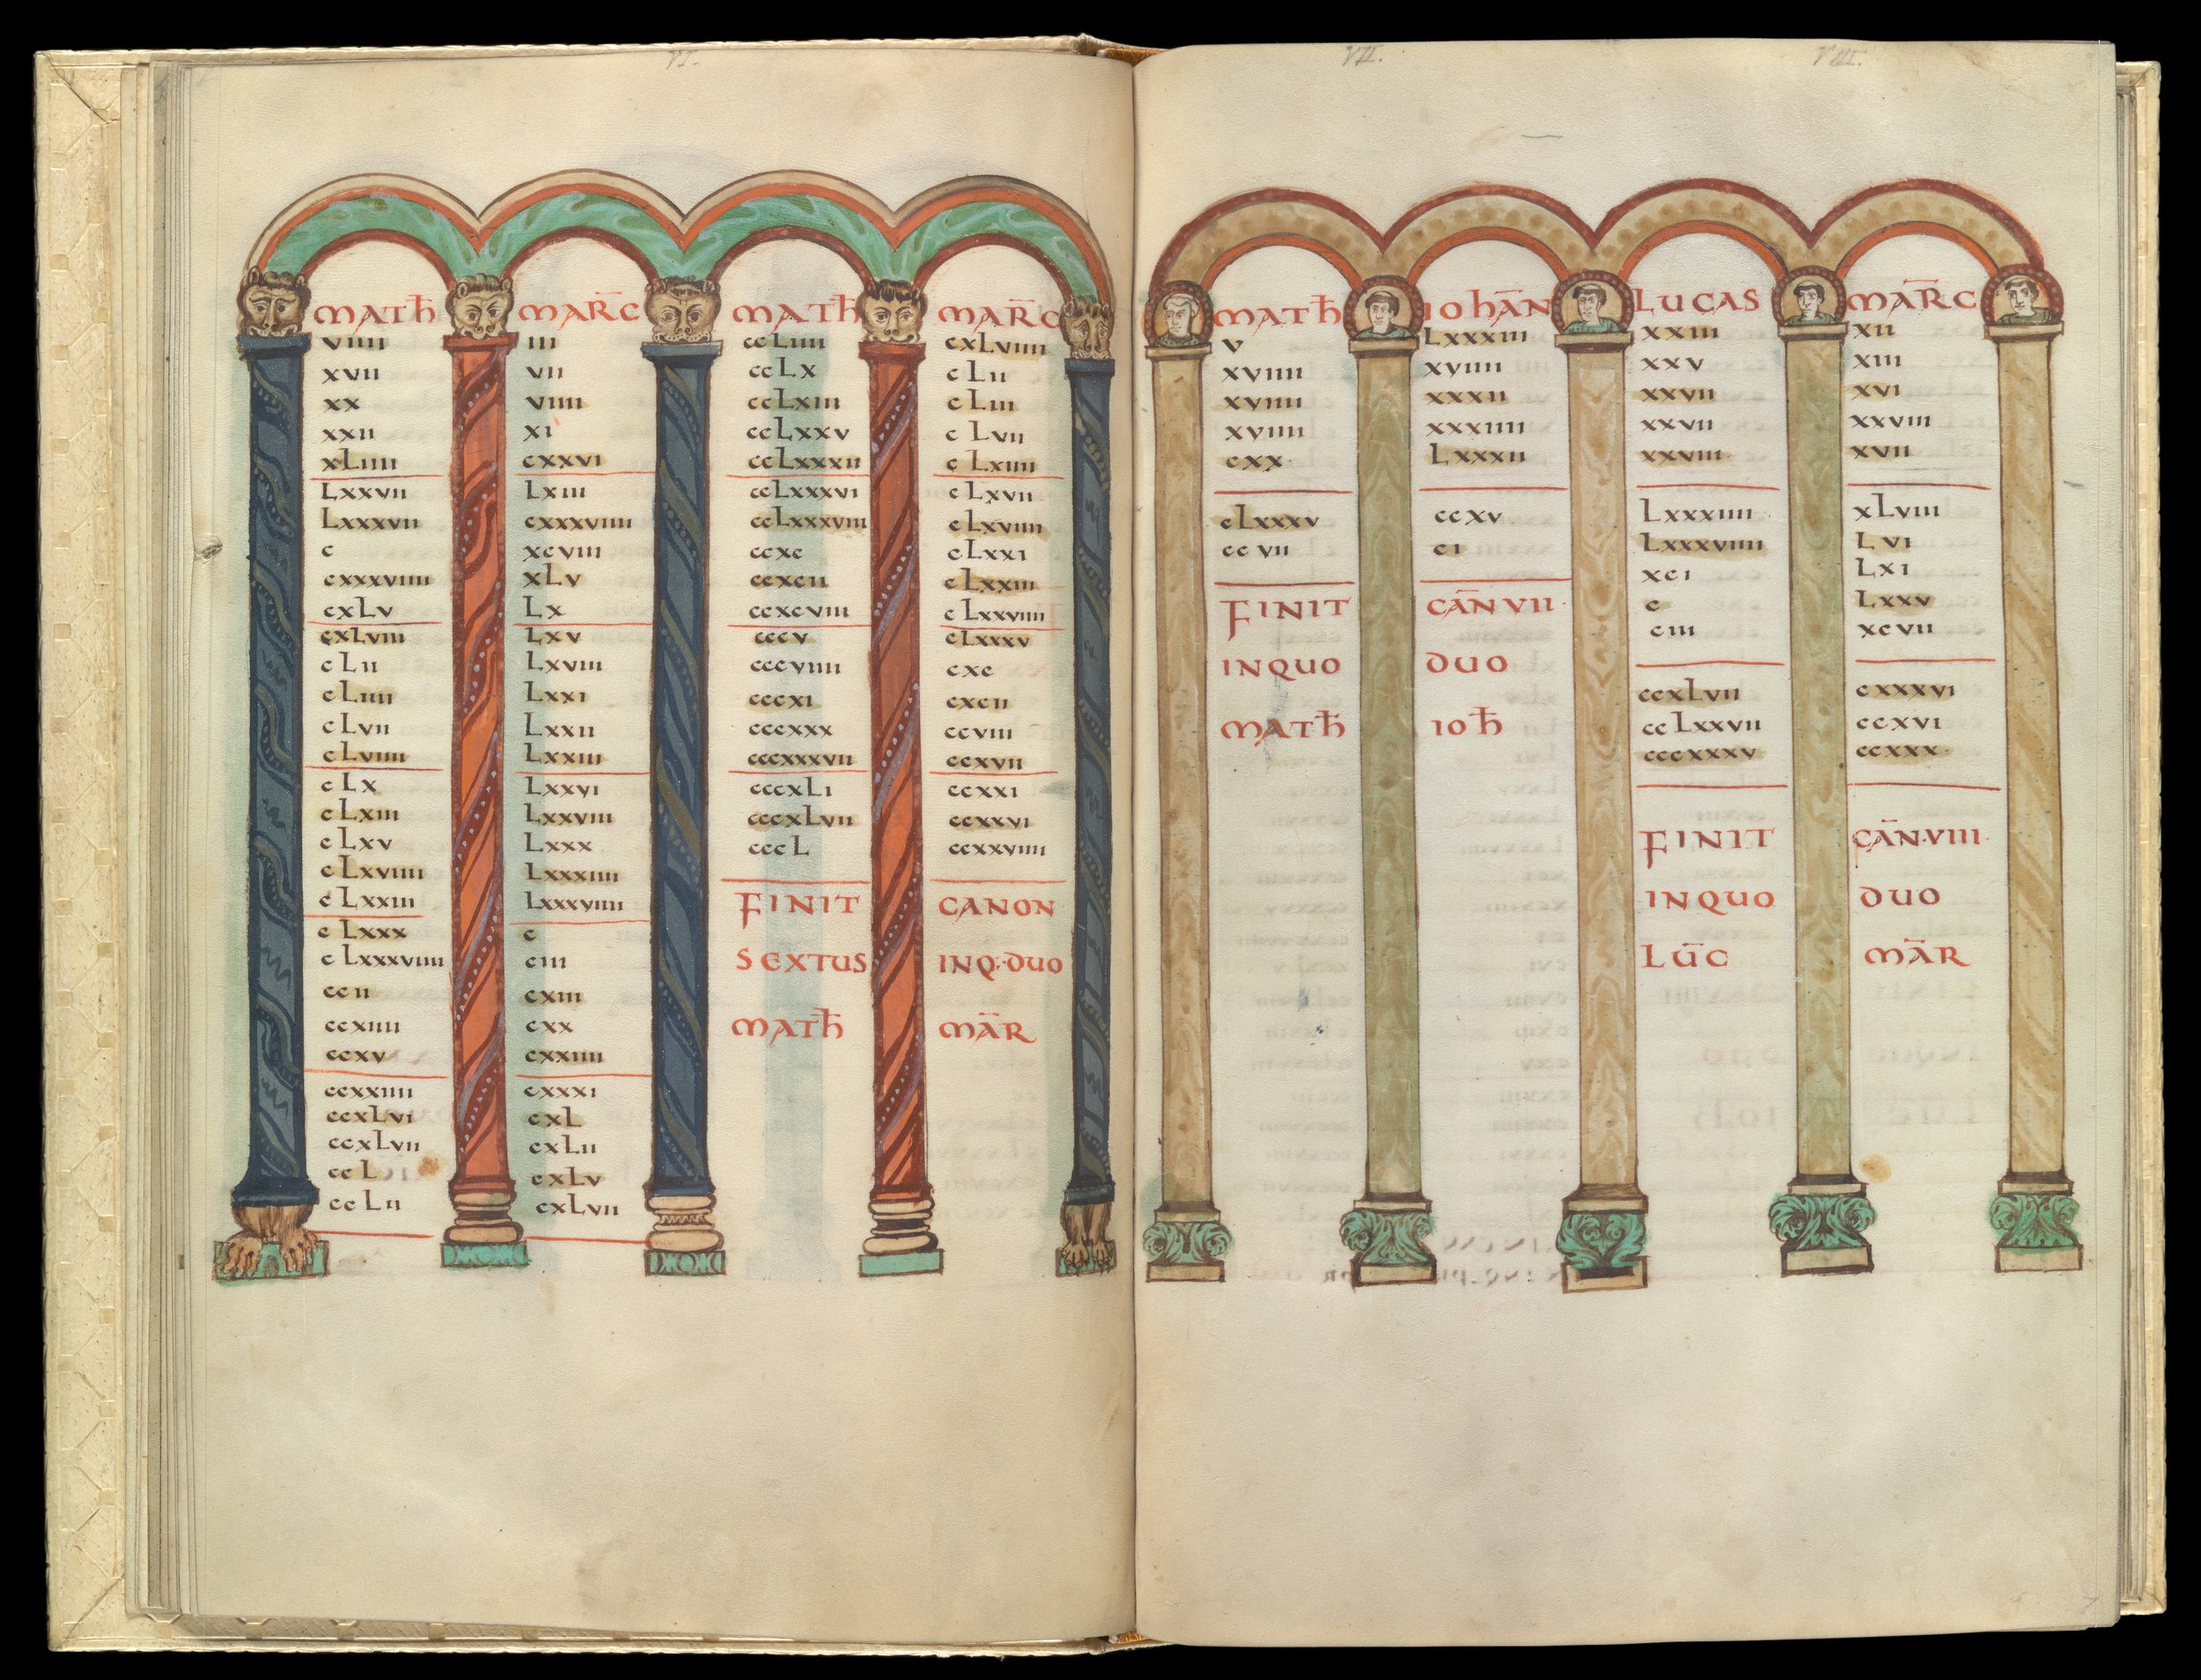 VI.
MATH̄ MAR̄C
viiii iii
xvii vii
xx viiii
xxii xi
xLiiii cxxvi
Lxxvii Lxiii
Lxxxvii cxxxviiii
c xcviii
cxxxviiii xLv
cxLv Lx
cxLviii Lxv
cLii Lxviii
cLiiii Lxxi
cLvii Lxxii
cLviiii Lxxiii
cLx Lxxvi
cLxiii Lxxviii
cLxv Lxxx
cLxviiii Lxxxiiii
cLxxiii Lxxxviiii
cLxxx c
cLxxxviiii ciii
ccii cxiii
ccxiiii cxx
ccxv cxxiiii
ccxxiiii cxxxi
ccxLvi cxL
ccxLvii cxLii
ccL cxLv
ccLii cxLvii
MATH̄ MAR̄C
ccLiiii cxLviiii
ccLx cLii
ccLxiii cLiii
ccLxxv cLvii
ccLxxxii cLxiiii
ccLxxxvi cLxvii
ccLxxxviii cLxviiii
ccxc cLxxi
ccxcii cLxxiii
ccxcviii cLxxviiii
cccv cLxxxv
cccviiii cxc
cccxi cxcii
cccxxx ccviii
cccxxxvii ccxvii
cccxLi ccxxi
cccxLvii ccxxvi
cccL ccxxviiii
FINIT CANON
SEXTUS INQ·DUO
MATH̄ MĀR
VII.
MATH̄ IOHĀN
v Lxxxiii
xviiii xviiii
xviiii xxxii
xviiii xxxiiii
cxx Lxxxii
cLxxxv ccxv
ccvii ci
FINIT CĀN VII·
INQUO DUO
MATH̄ IOH̄
VIII.
LUCAS MAR̄C
xxiii xii
xxv xiii
xxvii xvi
xxvii xxviii
xxviii xvii
Lxxxiiii xLviii
Lxxxviiii Lvi
xci Lxi
c Lxxv
ciii xcvii
ccxLvii cxxxvi
ccLxxvii ccxvi
cccxxxv ccxxx
FINIT CĀN·VIII·
INQUO DUO
LŪC MĀR